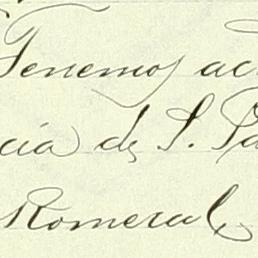 Tenemos ac
cia de S. Pa
Romeral,